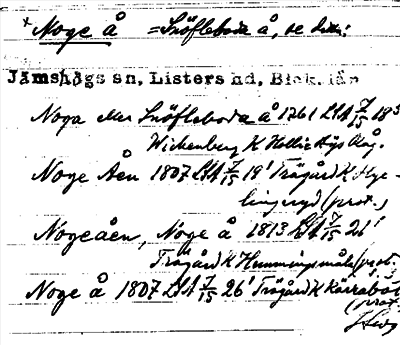 * Noge å = Snöfleboda å, se detta!
Jämshögs sn, Listers hd, Blek. län
Noga eller Snöfleboda å 1761 LSA 7/15 18
Wickenberg K Hallie
Noge Åen 1807 LSA 7/15 19' Trägård K Hye-
lingeryd (prot.)
Nogeåen, Noge å 1813 LSA 7/15 26'
Trägård K Hummingsmåla (prot.
Noge å 1807 LSA 7/15 26' Trägård K Kärraboda
(prot.)